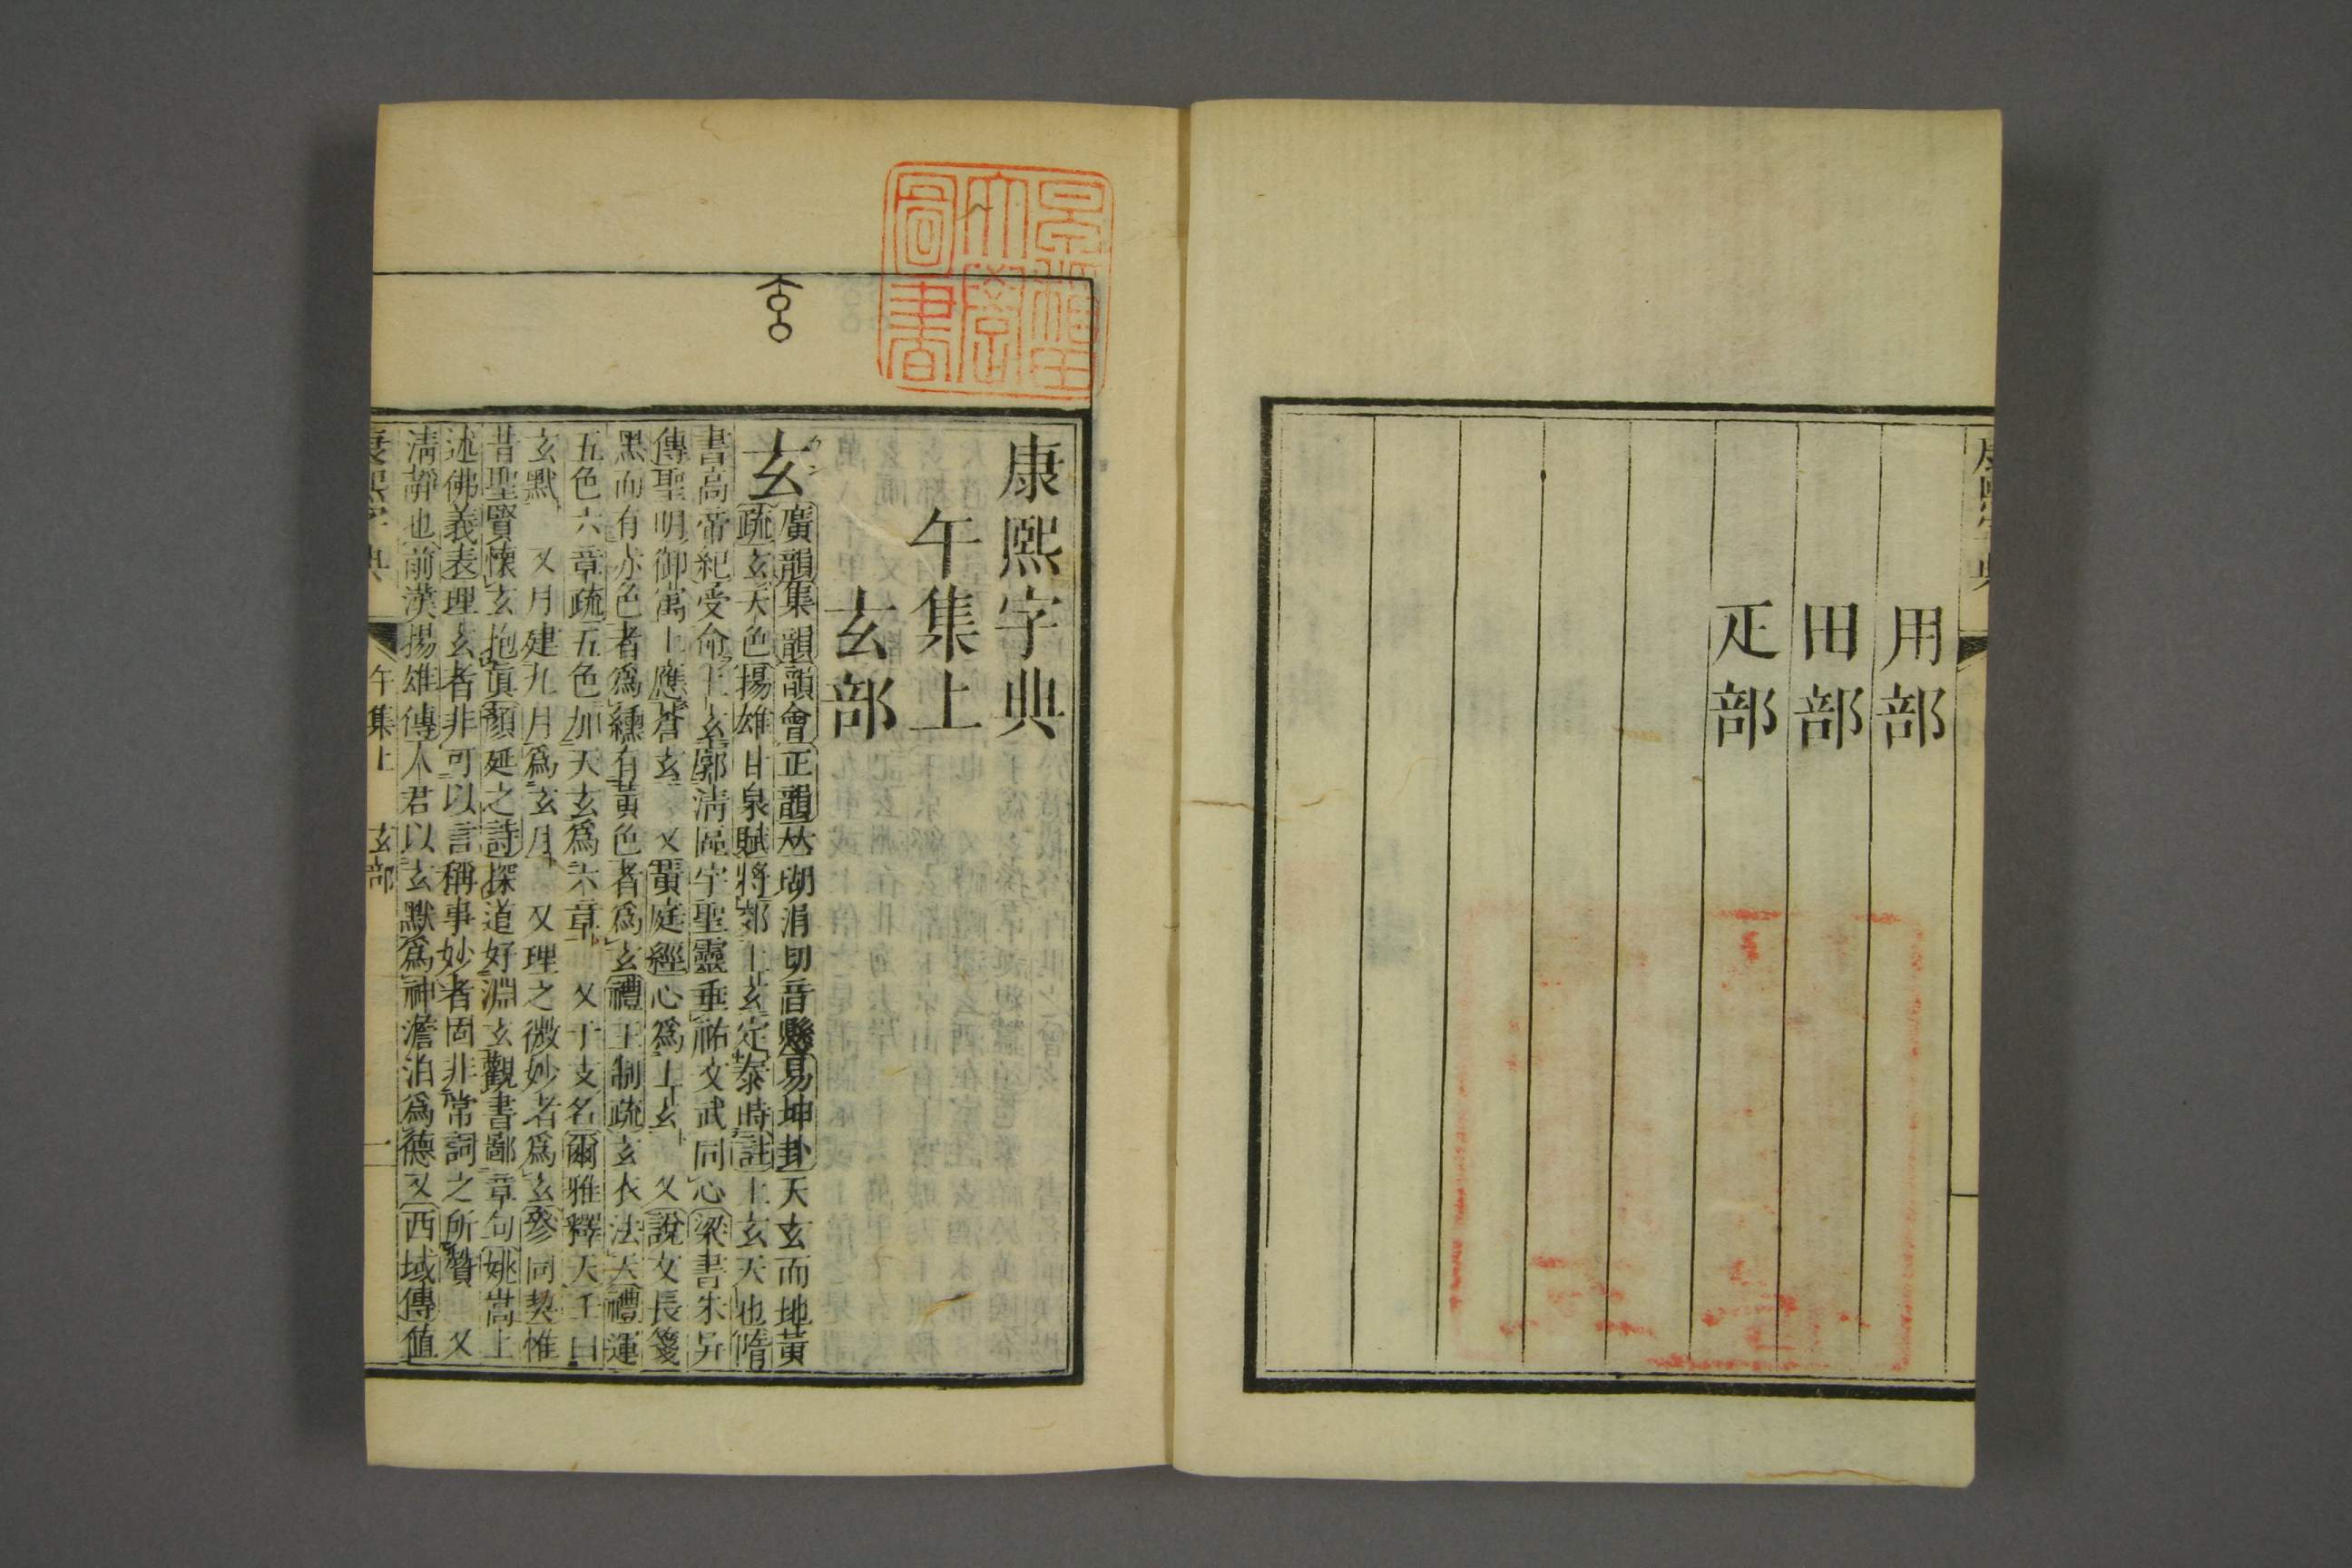 用部
田部
疋部
康熙字典
午集上
玄部
玄
廣韻集韻韻會正韻𠀤胡涓切音懸易坤卦天玄而地黃
疏玄天色揚雄甘泉賦將郊上玄定泰時註上玄天也隋
書高帝紀受命上玄廓淸區宇聖靈垂祐文武同心梁書朱异
傳聖明御㝢上應蒼玄 又黃庭經心爲上玄 又說文長箋
黑而有赤色者爲纁有黃色者爲玄禮王制疏玄衣法天禮運
五色六章疏五色加天玄爲六章 又干支名爾雅釋天壬曰
玄默 又月建九月爲玄月 又理之微妙者爲玄參同契惟
昔聖賢懷玄抱眞顏延之詩探道好淵玄觀書鄙章句姚嵩上
述佛義表理玄者非可以言稱事妙者固非常詞之所贊 又
淸靜也前漢揚雄傳人君以玄默爲神澹泊爲德又西域傳値
午集上 玄部 一
圖書